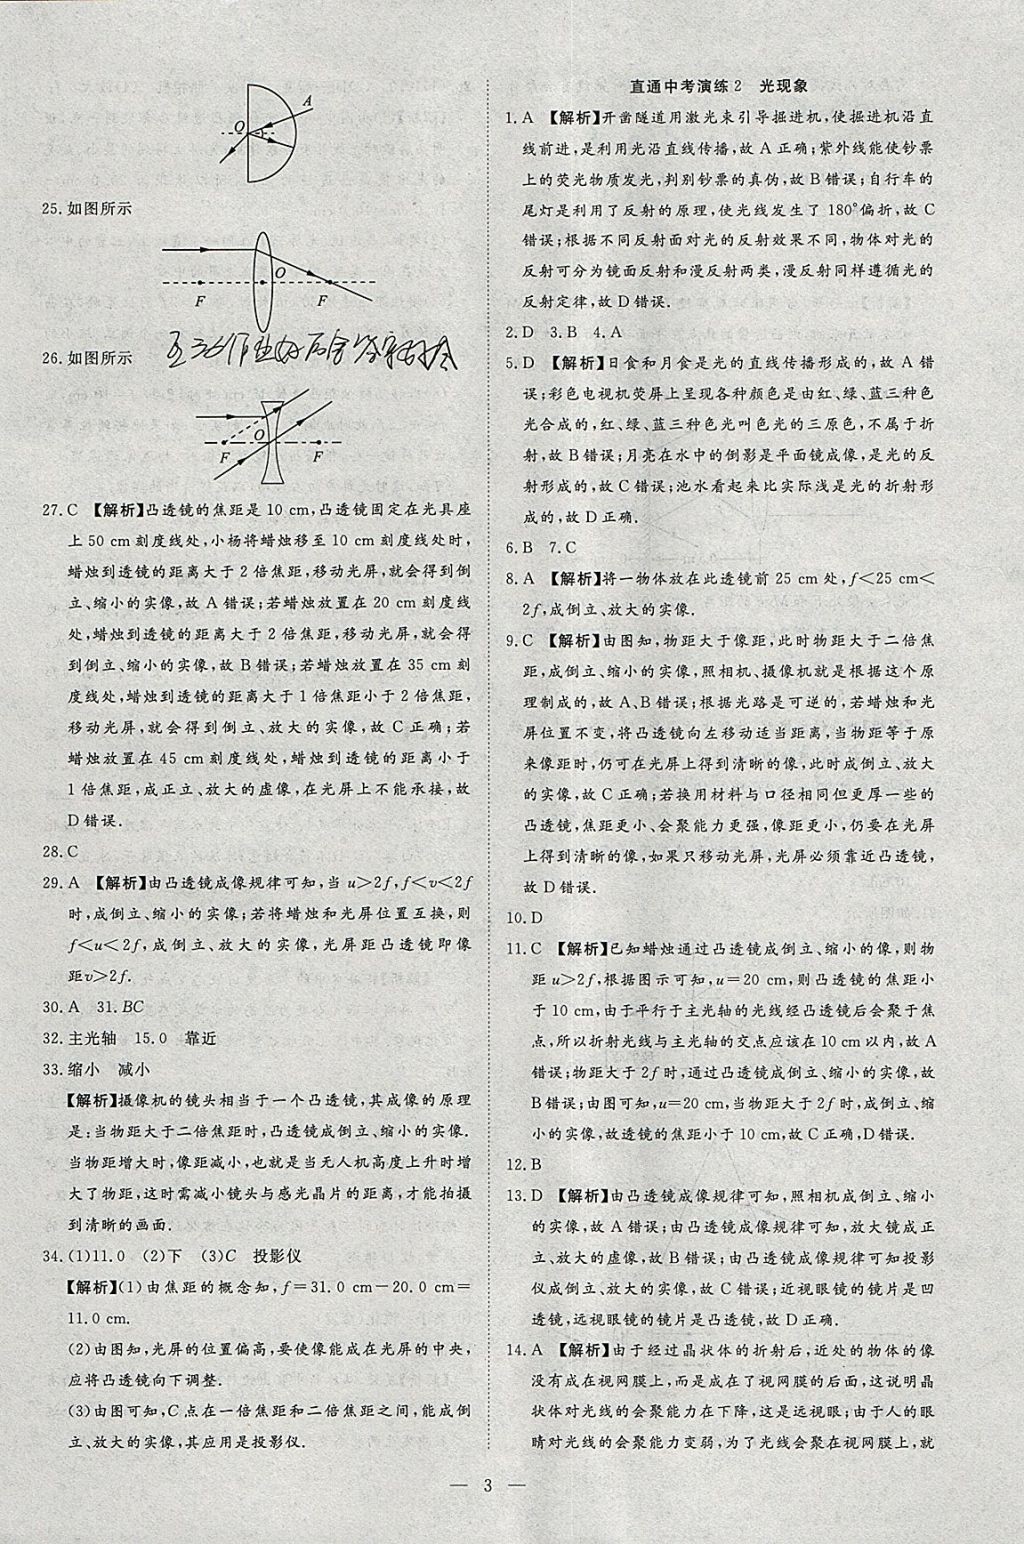 A
O
25.如图所示
O
F
F
26.如图所示
O
F
F
27.C 【解析】凸透镜的焦距是10 cm,凸透镜固定在光具座
上50 cm刻度线处,小杨将蜡烛移至10 cm刻度线处时,
蜡烛到透镜的距离大于2倍焦距,移动光屏,就会得到倒
立、缩小的实像,故A错误;若蜡烛放置在20 cm刻度线
处,蜡烛到透镜的距离大于2倍焦距,移动光屏,就会得
到倒立、缩小的实像,故B错误;若蜡烛放置在35 cm刻
度线处,蜡烛到透镜的距离大于1倍焦距小于2倍焦距,
移动光屏,就会得到倒立、放大的实像,故C正确;若
蜡烛放置在45 cm刻度线处,蜡烛到透镜的距离小于
1倍焦距,成正立、放大的虚像,在光屏上不能承接,故
D错误.
28.C
29.A 【解析】由凸透镜成像规律可知,当u>2f,f<v<2f
时,成倒立、缩小的实像;若将蜡烛和光屏位置互换,则
f<u<2f,成倒立、放大的实像,光屏距凸透镜即像
距v>2f.
30.A 31.BC
32.主光轴 15.0 靠近
33.缩小 减小
【解析】摄像机的镜头相当于一个凸透镜,其成像的原理
是:当物距大于二倍焦距时,凸透镜成倒立、缩小的实像.
当物距增大时,像距减小,这就是当无人机高度上升时增
大了物距,这时需减小镜头与感光晶片的距离,才能拍摄
到清晰的画面.
34.(1)11.0 (2)下 (3)C 投影仪
【解析】(1)由焦距的概念知,f=31.0 cm-20.0 cm=
11.0 cm.
(2)由图知,光屏的位置偏高,要使像能成在光屏的中央,
应将凸透镜向下调整.
(3)由图可知,C点在一倍焦距和二倍焦距之间,能成倒
立、放大的实像,其应用是投影仪.
直通中考演练2 光现象
1.A 【解析】开凿隧道用激光束引导掘进机,使掘进机沿直
线前进,是利用光沿直线传播,故A正确;紫外线能使钞票
上的荧光物质发光,判别钞票的真伪,故B错误;自行车的
尾灯是利用了反射的原理,使光线发生了180°偏折,故C
错误;根据不同反射面对光的反射效果不同,物体对光的
反射可分为镜面反射和漫反射两类,漫反射同样遵循光的
反射定律,故D错误.
2.D 3.B 4.A
5.D 【解析】日食和月食是光的直线传播形成的,故A错
误;彩色电视机荧屏上呈现各种颜色是由红、绿、蓝三种色
光合成的,红、绿、蓝三种色光叫色光的三原色,不属于折
射,故B错误;月亮在水中的倒影是平面镜成像,是光的反
射形成的,故C错误;池水看起来比实际浅是光的折射形
成的,故D正确.
6.B 7.C
8.A 【解析】将一物体放在此透镜前25 cm处,f<25 cm<
2f,成倒立、放大的实像.
9.C 【解析】由图知,物距大于像距,此时物距大于二倍焦
距,成倒立、缩小的实像,照相机、摄像机就是根据这个原
理制成的,故A、B错误;根据光路是可逆的,若蜡烛和光
屏位置不变,将凸透镜向左移动适当距离,当物距等于原
来像距时,仍可在光屏上得到清晰的像,此时成倒立、放大
的实像,故C正确;若换用材料与口径相同但更厚一些的
凸透镜,焦距更小、会聚能力更强,像距更小,仍要在光屏
上得到清晰的像,如果只移动光屏,光屏必须靠近凸透镜,
故D错误.
10.D
11.C 【解析】已知蜡烛通过凸透镜成倒立、缩小的像,则物
距u>2f,根据图示可知,u=20 cm,则凸透镜的焦距小
于10 cm,由于平行于主光轴的光线经凸透镜后会聚于焦
点,所以折射光线与主光轴的交点应该在10 cm以内,故A
错误;物距大于2f时,通过凸透镜成倒立、缩小的实像,故
B错误;由图可知,u=20 cm,当物距大于2f时,成倒立、缩
小的实像,故透镜的焦距小于10 cm,故C正确,D错误.
12.B
13.D 【解析】由凸透镜成像规律可知,照相机成倒立、缩小
的实像,故A错误;由凸透镜成像规律可知,放大镜成正
立、放大的虚像,故B错误;由凸透镜成像规律可知投影
仪成倒立、放大的实像,故C错误;近视眼镜的镜片是凹
透镜,远视眼镜的镜片是凸透镜,故D正确.
14.A 【解析】由于经过晶状体的折射后,近处的物体的像
没有成在视网膜上,而是成在了视网膜的后面,这说明晶
状体对光线的会聚能力在下降,这是远视眼;由于人的眼
睛对光线的会聚能力变弱,为了光线会聚在视网膜上,就
— 3 —